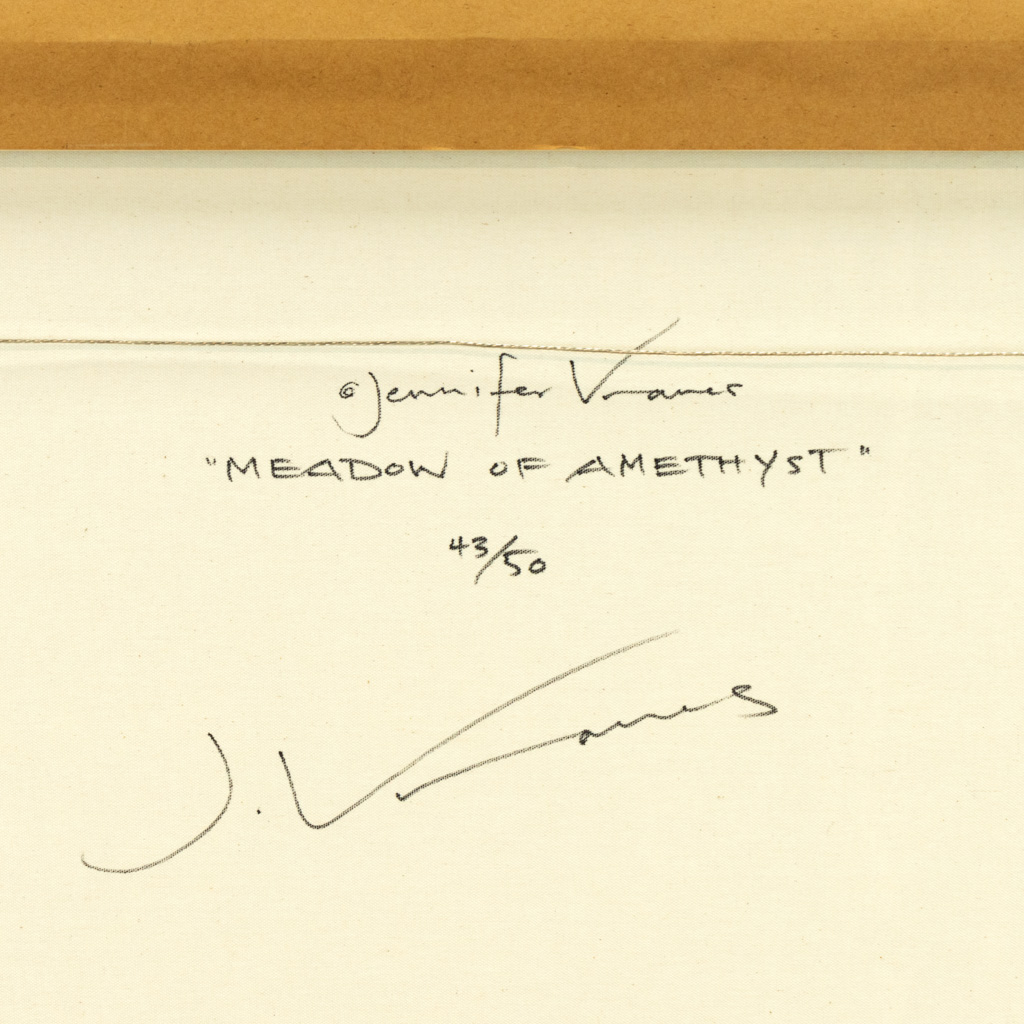 © Jennifer Vranes
"MEADOW OF AMETHYST"
43/50
J. Vranes